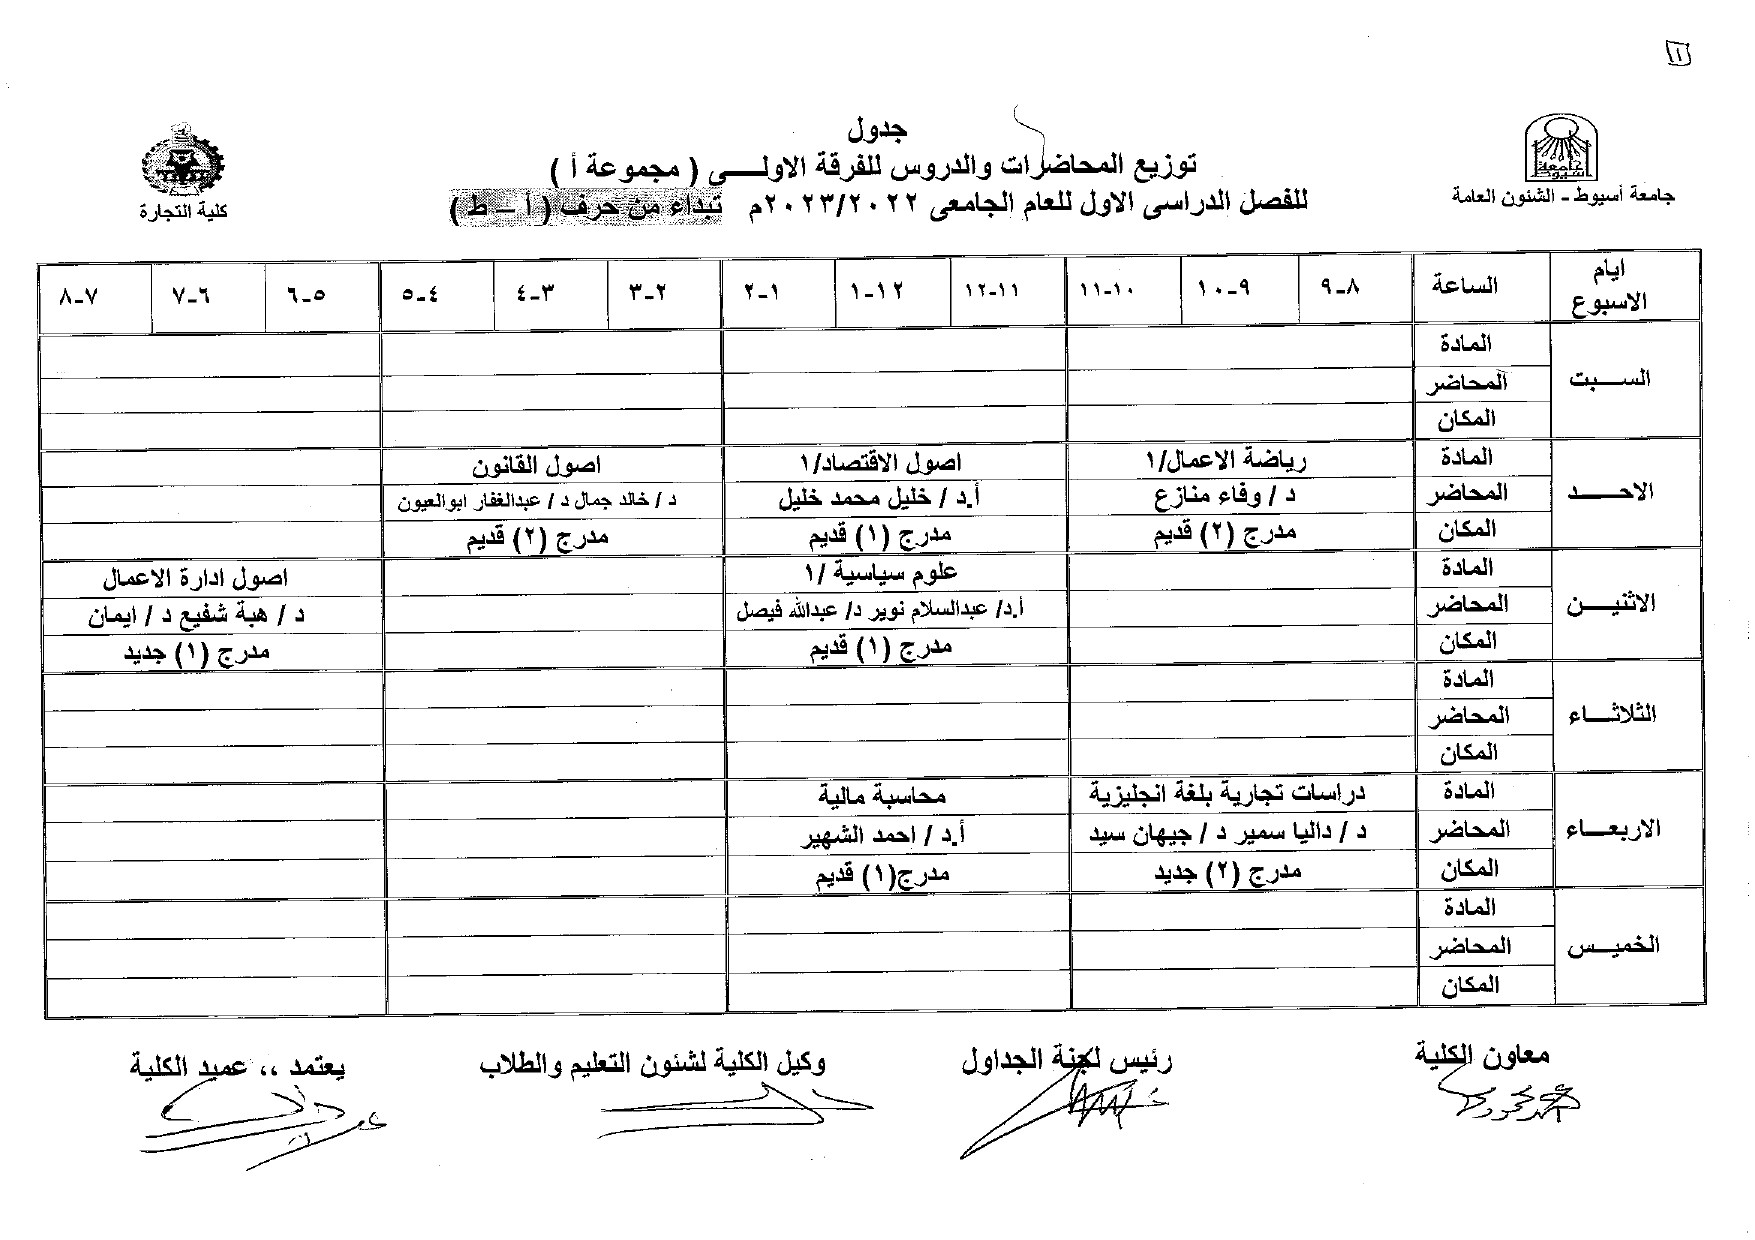 ١١
جدول
توزيع المحاضرات والدروس للفرقة الاولــى ( مجموعة أ )
للفصل الدراسى الاول للعام الجامعى ٢٠٢٣/٢٠٢٢م تبداء من حرف ( أ – ط )
جامعة أسيوط - الشئون العامة
كلية التجارة
ايام الاسبوع الساعة ٨-٩ ٩-١٠ ١٠-١١ ١١-١٢ ١٢-١ ١-٢ ٢-٣ ٣-٤ ٤-٥ ٥-٦ ٦-٧ ٧-٨
السـبت المادة
المحاضر
المكان
الاحـد المادة رياضة الاعمال/١ اصول الاقتصاد/١ اصول القانون
المحاضر د / وفاء منازع أ.د / خليل محمد خليل د / خالد جمال د / عبدالغفار ابوالعيون
المكان مدرج (٢) قديم مدرج (١) قديم مدرج (٢) قديم
الاثنيـن المادة علوم سياسية /١ اصول ادارة الاعمال
المحاضر أ.د/ عبدالسلام نوير د/ عبدالله فيصل د / هبة شفيع د / ايمان
المكان مدرج (١) قديم مدرج (١) جديد
الثلاثـاء المادة
المحاضر
المكان
الاربعـاء المادة دراسات تجارية بلغة انجليزية محاسبة مالية
المحاضر د / داليا سمير د / جيهان سيد أ.د / احمد الشهير
المكان مدرج (٢) جديد مدرج(١) قديم
الخميـس المادة
المحاضر
المكان
معاون الكلية رئيس لجنة الجداول وكيل الكلية لشئون التعليم والطلاب يعتمد ،، عميد الكلية